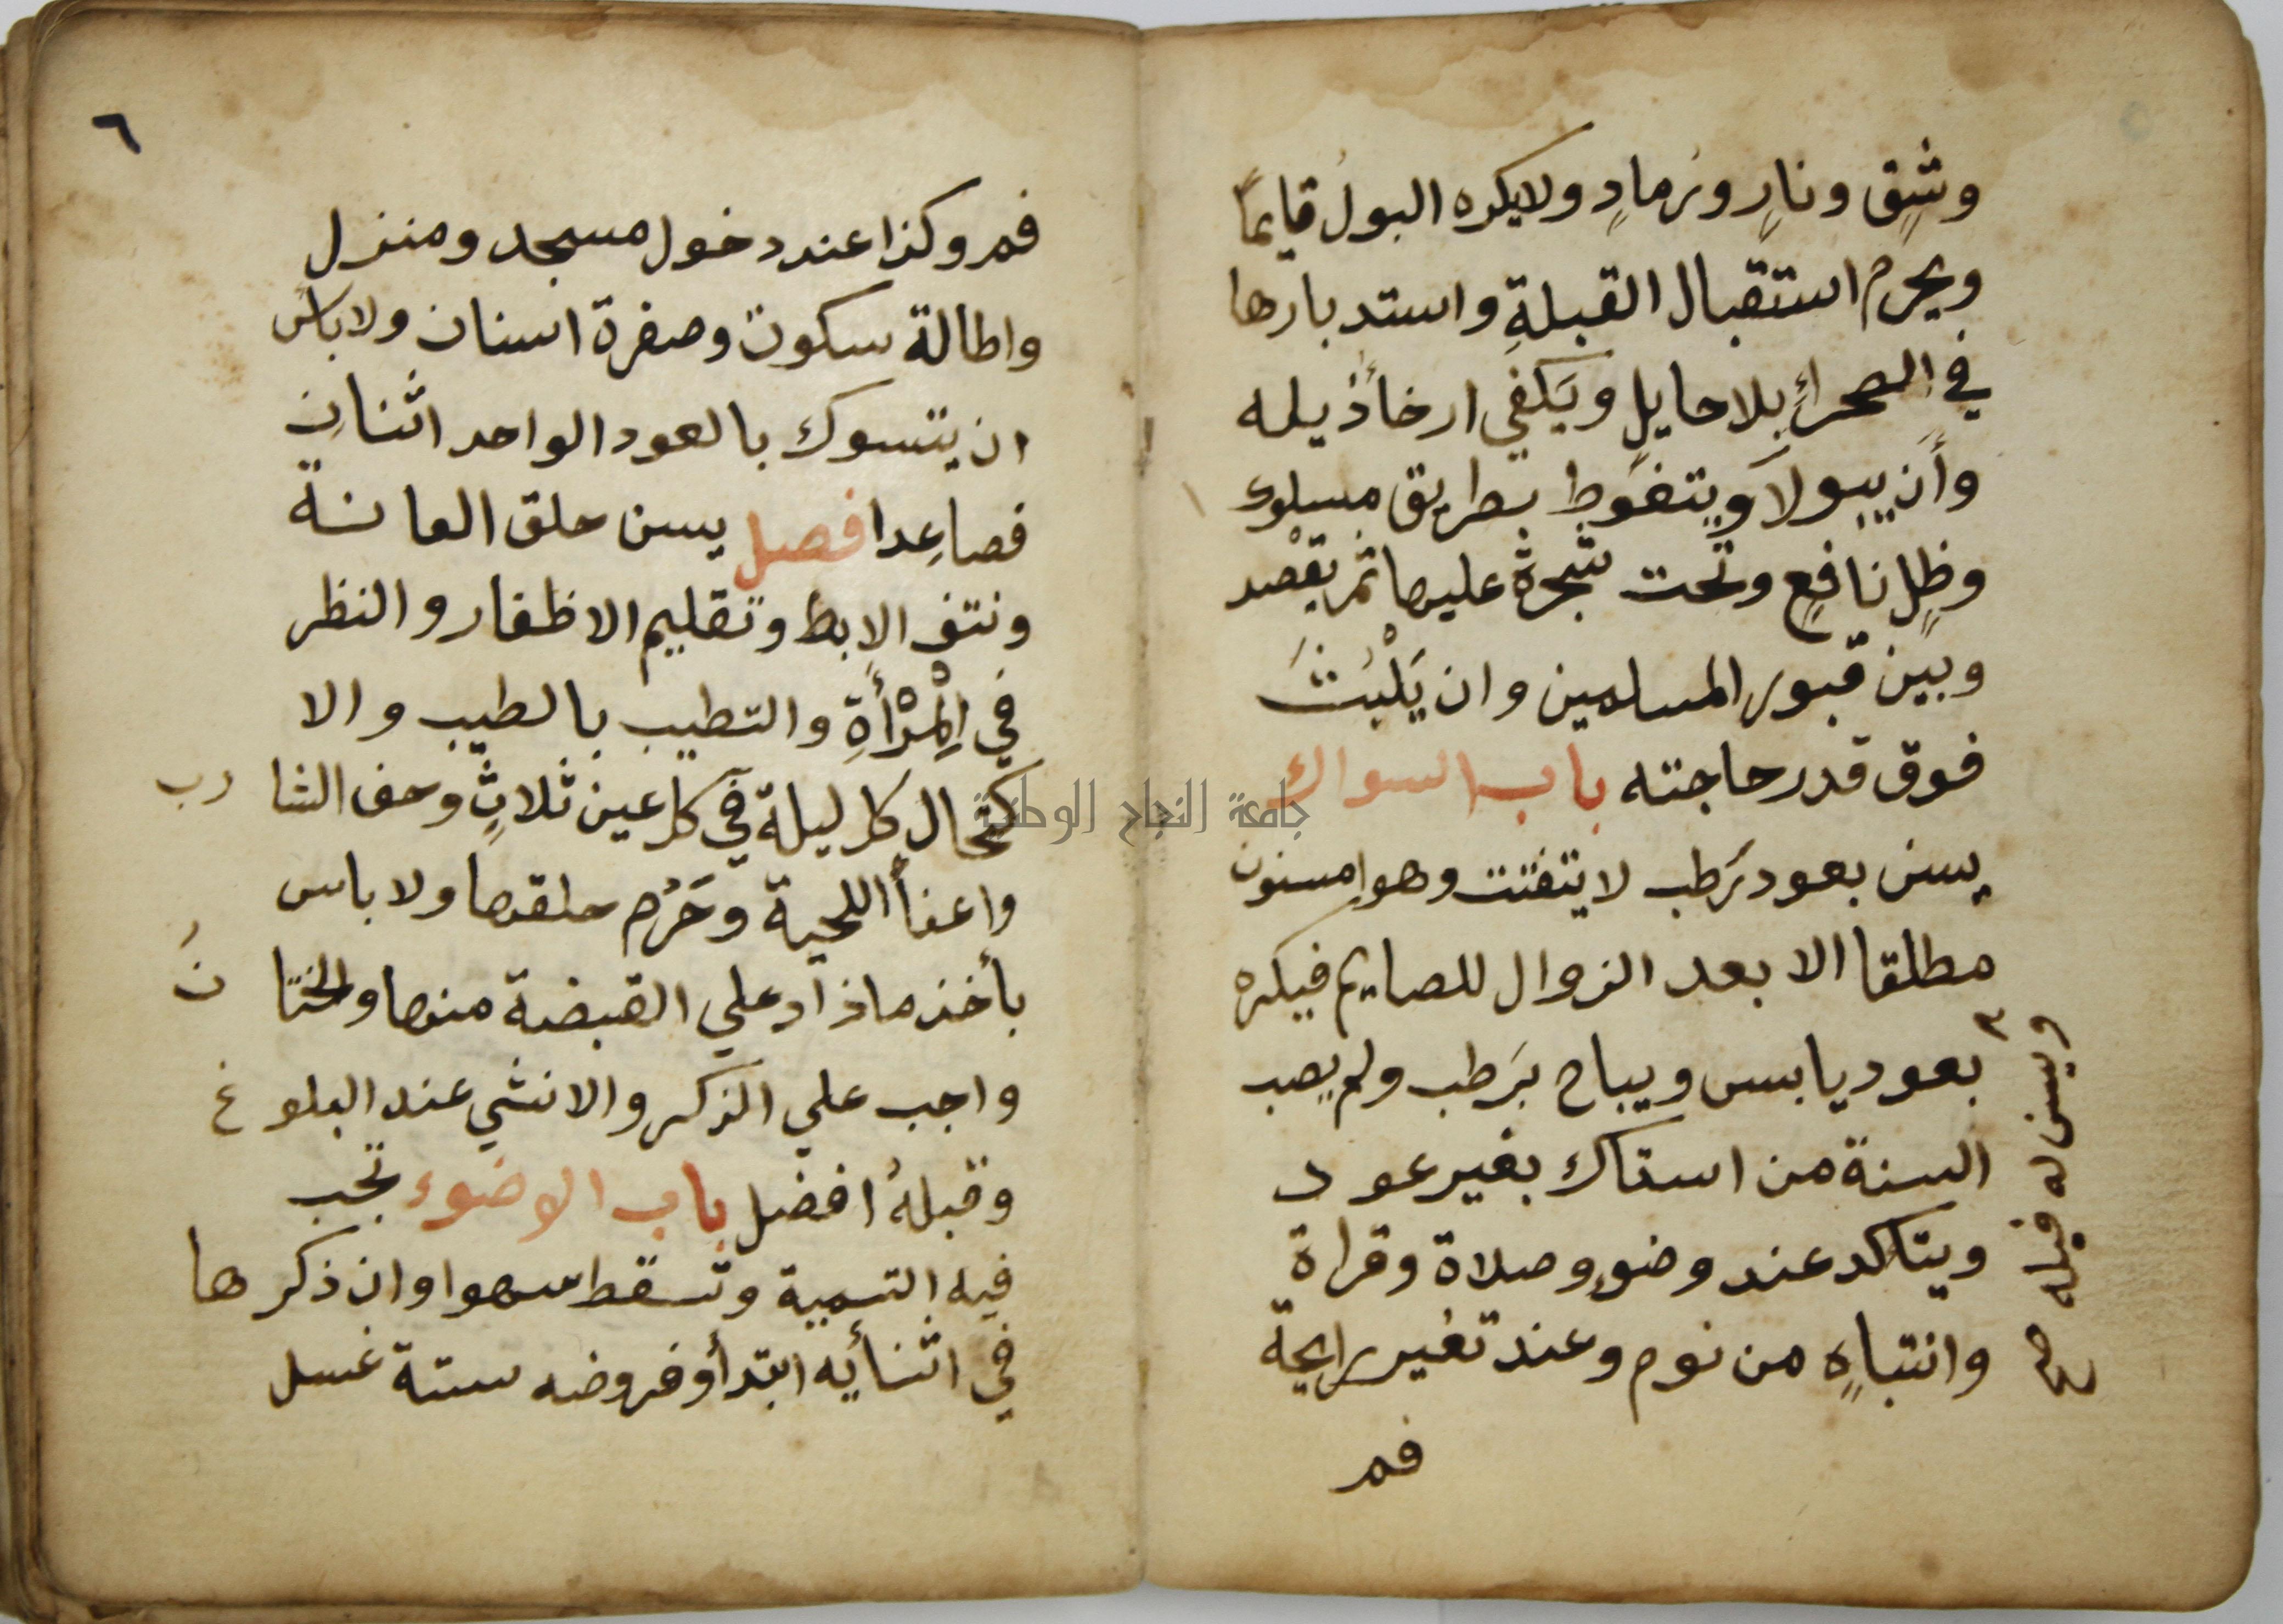 وشق ونارٍ ورمادٍ ولايكره البولُ قايماً
ويحرم استقبال القبلةِ واستدبارها
في الصحراءِ بلا حايلٍ ويَكفي ارخاءُ ذيله
وأَن يبولَ ويتغوط بطريق مسلوك
وظِلٍ نافعٍ وتحت شجرة عليها ثمر يقْصد
وبَين قبور المسلمين وان يَلْبَثَ
فوق قدر حاجته باب السواك
يسن بعود رَطب لا يتفتت وهو مسنون
مطلقا الا بعد الزوال للصايم فيكره
بعود يابس ويباح برَطب ولم يصب
السنة من استاك بغير عود
ويتاكد عند وضوء وصلاة وقراة
وانتباهٍ من نوم وعند تغير رايحة
فمر
ويسن له قبله صح
٦
فمر وكذا عند دخول مسجد ومنزل
واطالة سكوت وصفرة اسنان ولا بأس
ان يتسوك بالعود الواحد اثنان
فصاعِدا فصل يسن حلق العانة
ونتف الابط وتقليم الاظفار والنظر
في الِمْرْأَةِ والتطيب بالطيب والا
كتحال كل ليلة في كل عين ثلاثٍ وحف الشا رب
واعفأ اللحية وحَرُم حلقها ولا باس
بأخذ ما زاد علي القبضة منها والختا نَ
واجب علي الذكر والانثي عند البلو غ
وقبلهُ افضل باب الاوضوء تجب
فيه التسمية وتسقط سهوا وان ذكر ها
في اثنأيه ابتدأ وفروضه ستة غسل
جامعة النجاح الوطنية